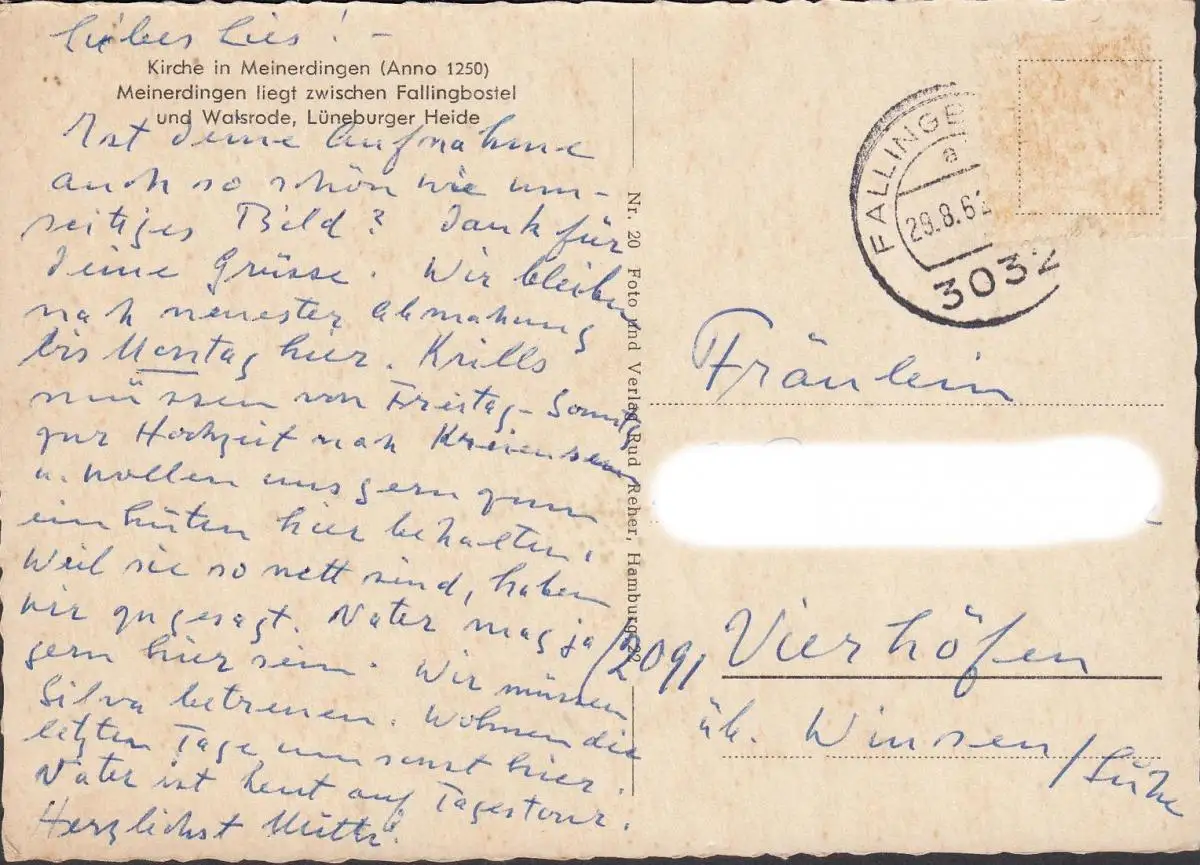 Liebes Lies! -
Kirche in Meinerdingen (Anno 1250)
Meinerdingen liegt zwischen Fallingbostel
und Walsrode, Lüneburger Heide
Ist deine Aufnahme
auch so schön wie um-
seitiges Bild? Dank für
deine Grüsse. Wir bleiben
nach neuester Abmachung
bis Montag hier. Krills
müssen von Freitag - Sonntag
zur Hochzeit nach Kreiensen
u. wollen uns gern zum
einhüten hier behalten.
Weil sie so nett sind, haben
wir zugesagt. Vater mag ja
gern hier sein. Wir müssen
Silva betreuen. Wohnen die
letzten Tage umsonst hier.
Vater ist heut auf Tagestour.
Herzlichst Mutti.
Nr. 20 Foto und Verlag Rud Reher, Hamburg 22
FALLINGB
a
29.8.62
3032
Fräulein
/2091 Vierhöfen
üb. Winsen / Luhe